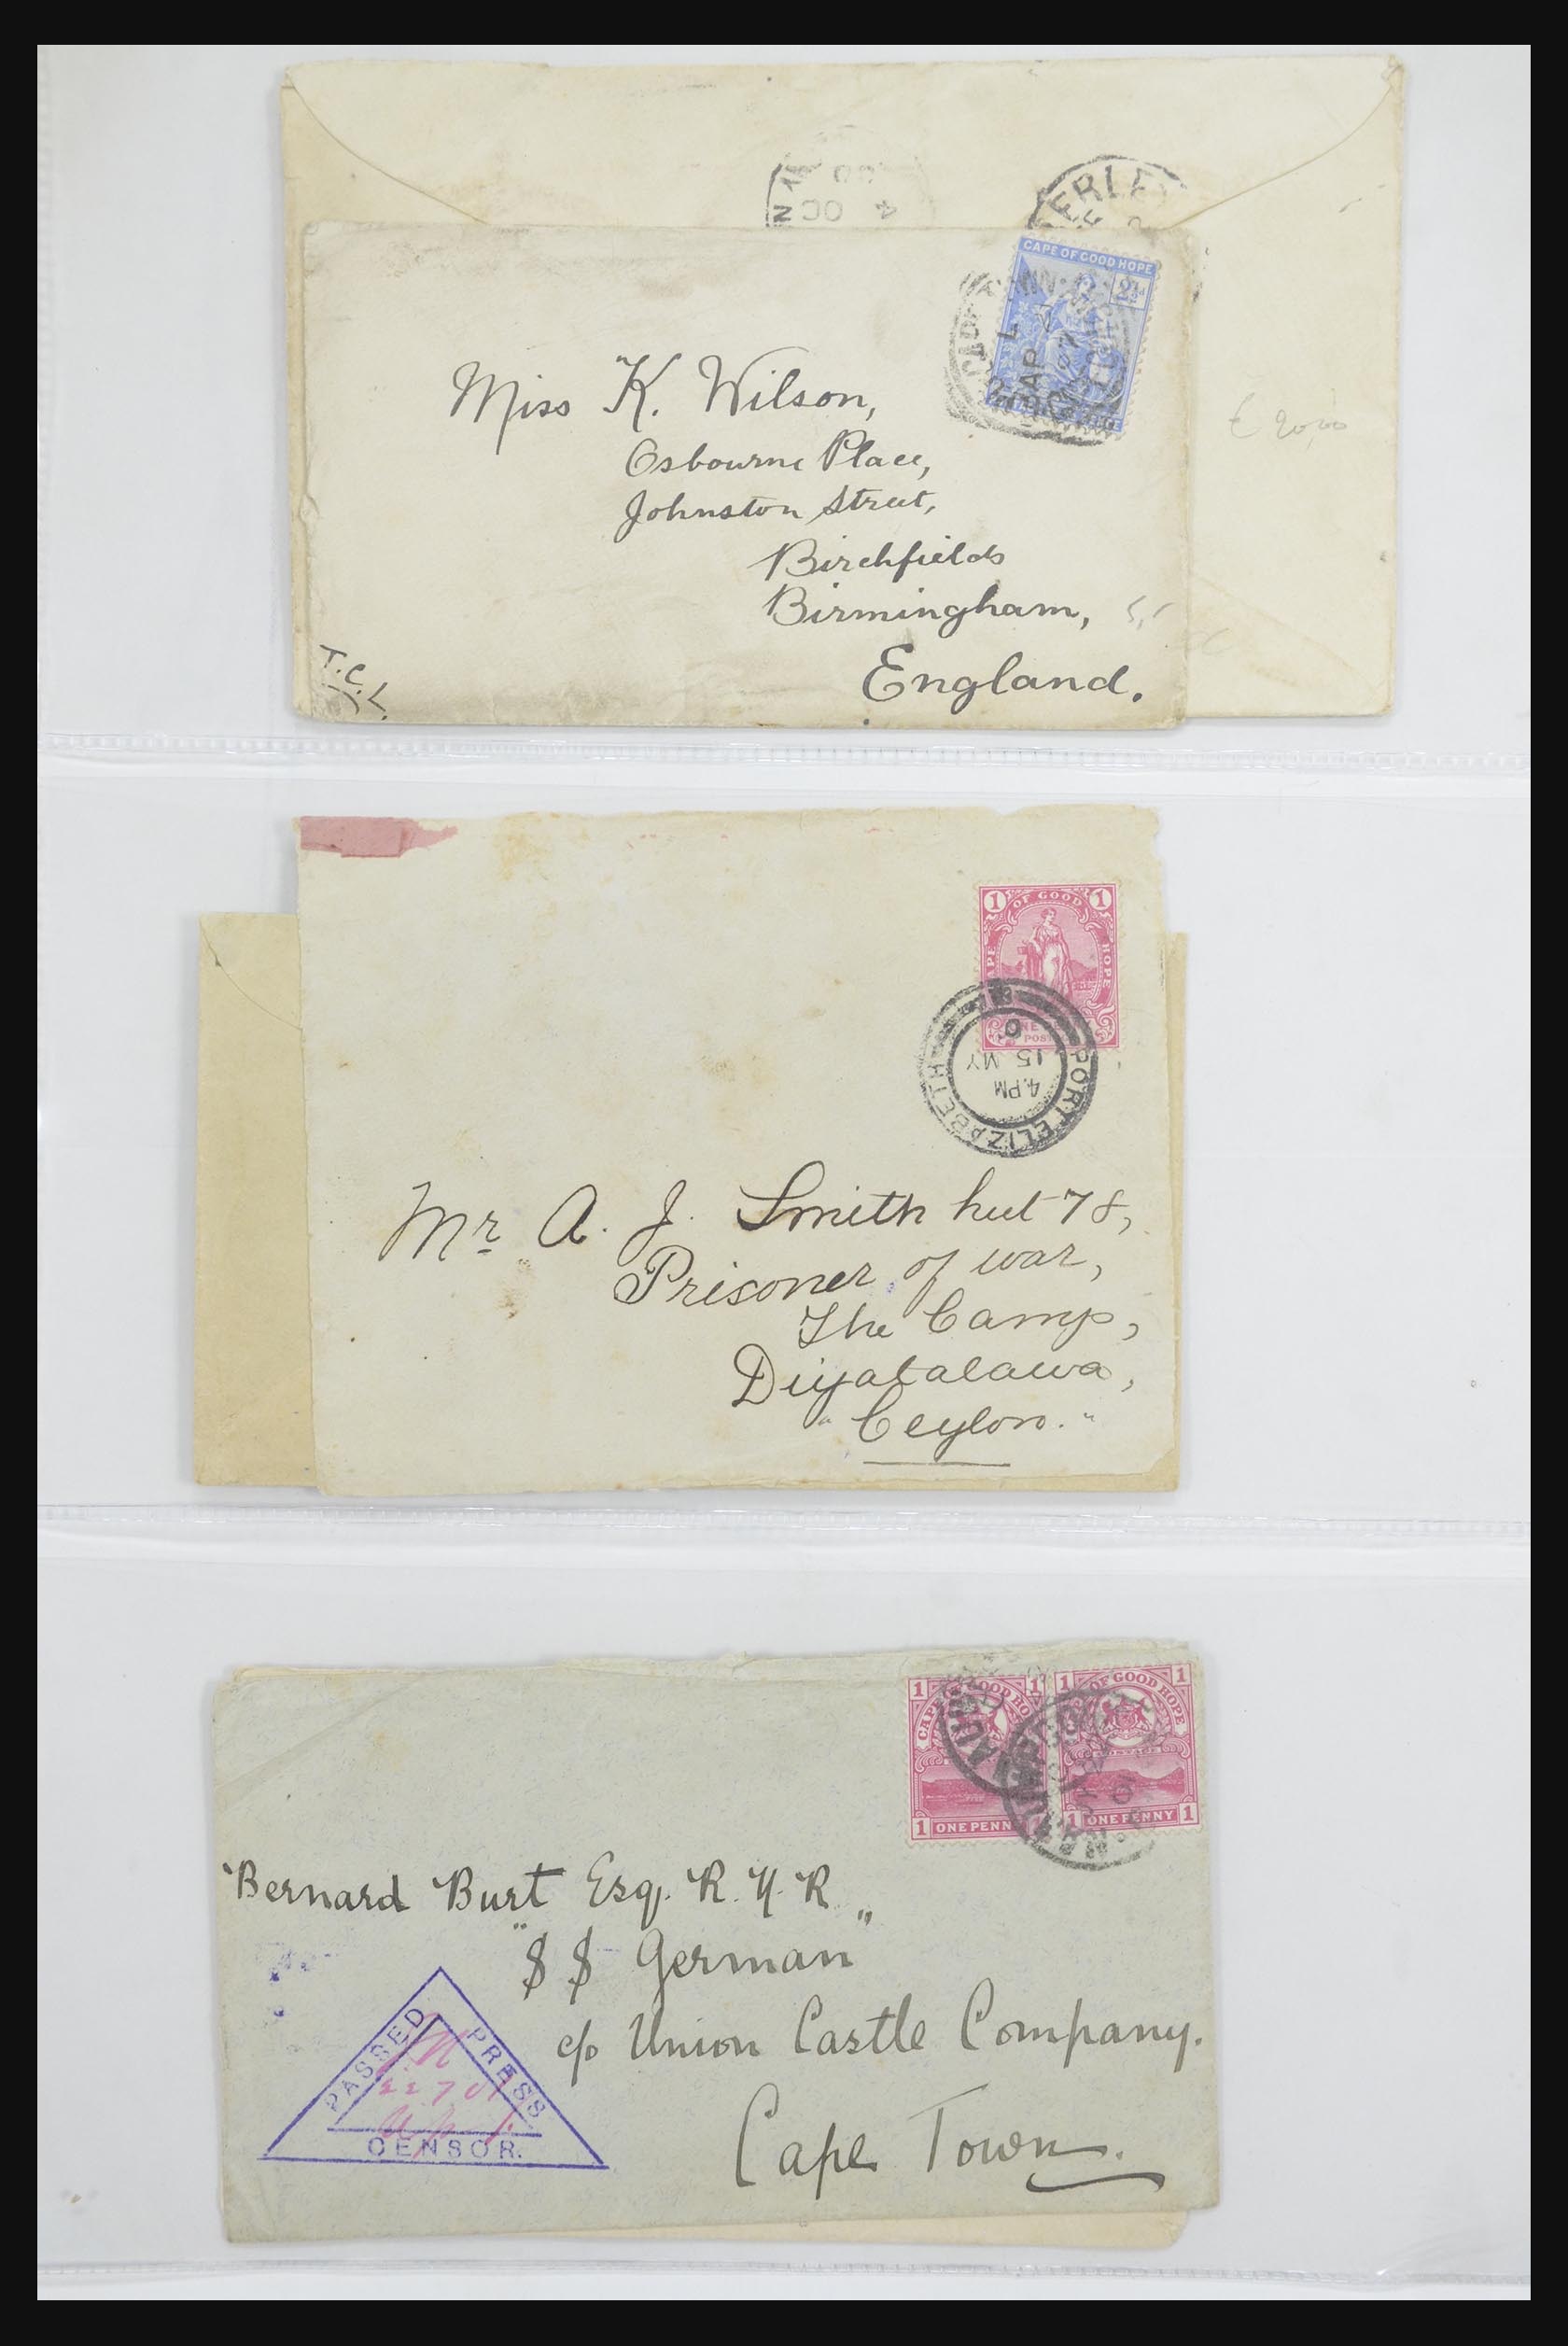 4 OC
CAPE OF GOOD HOPE
2½
AP
Miss K. Wilson,
Osbourne Place,
Johnston Street,
Birchfields
Birmingham,
England.
T.C.L.
€ 20,00
1 OF GOOD 1
CAPE HOPE
PORT ELIZABETH
4.PM
15 MY
Mr A. J. Smith hut 78,
Prisoner of war,
The Camp,
Diyatalawa,
"Ceylon."
1 CAPE OF GOOD HO 1
1 OF GOOD HOPE 1
POSTAGE
1 ONE PENN
1 ONE PENNY 1
Bernard Burt Esq. R.Y.R
"SS German"
c/o Union Castle Company.
Cape Town.
PASSED PRESS
CENSOR.
22 7 01